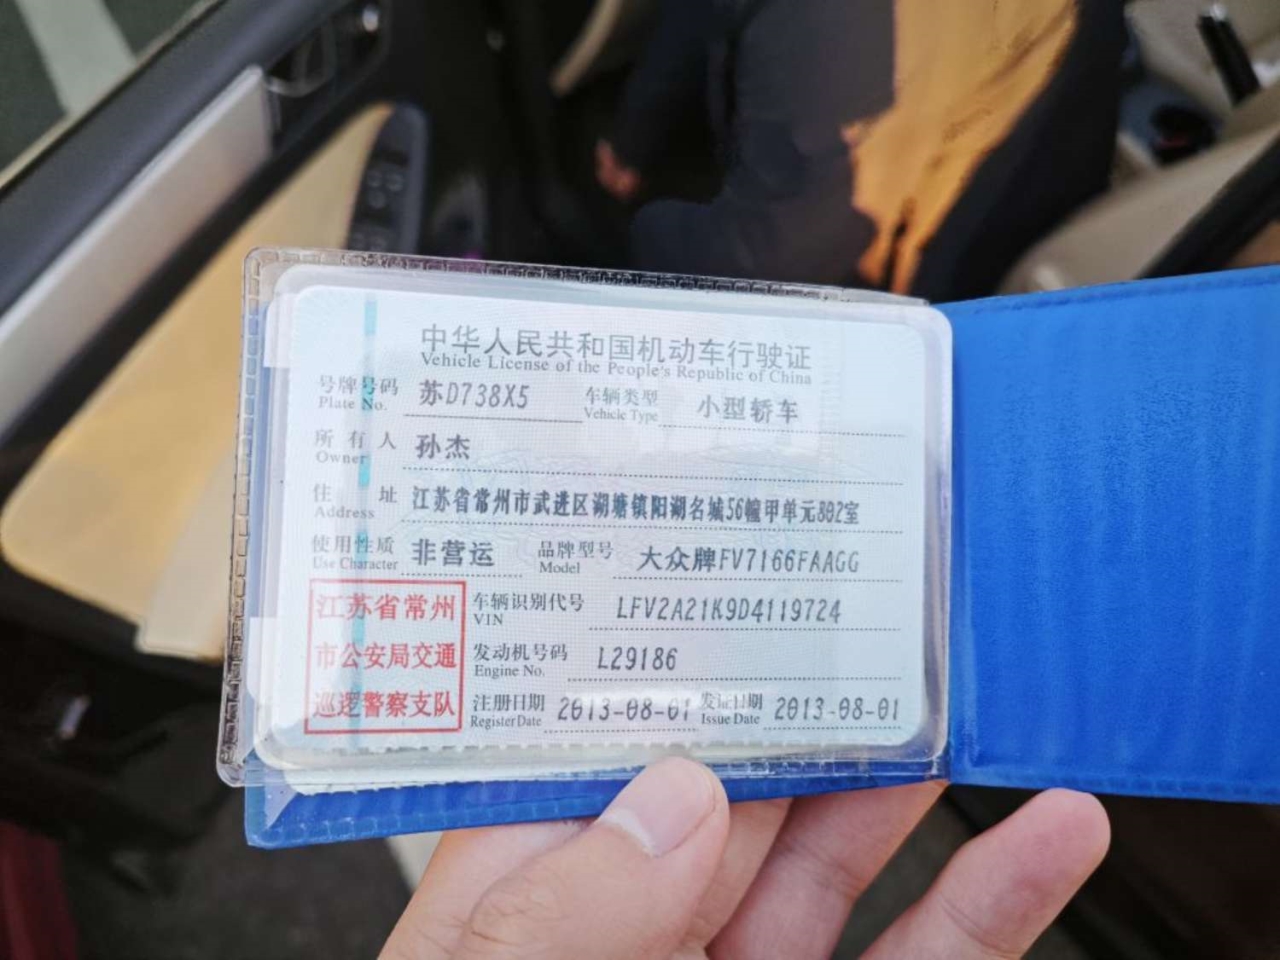 中华人民共和国机动车行驶证
Vehicle License of the People's Republic of China
号牌号码 苏D738X5 车辆类型 小型轿车
Plate No. Vehicle Type
所有人 孙杰
Owner
住址 江苏省常州市武进区湖塘镇阳湖名城56幢甲单元802室
Address
使用性质 非营运 品牌型号 大众牌FV7166FAAGG
Use Character Model
江苏省常州 车辆识别代号 LFV2A21K9D4119724
VIN
市公安局交通 发动机号码 L29186
Engine No.
巡逻警察支队 注册日期 2013-08-01 发证日期 2013-08-01
Register Date Issue Date